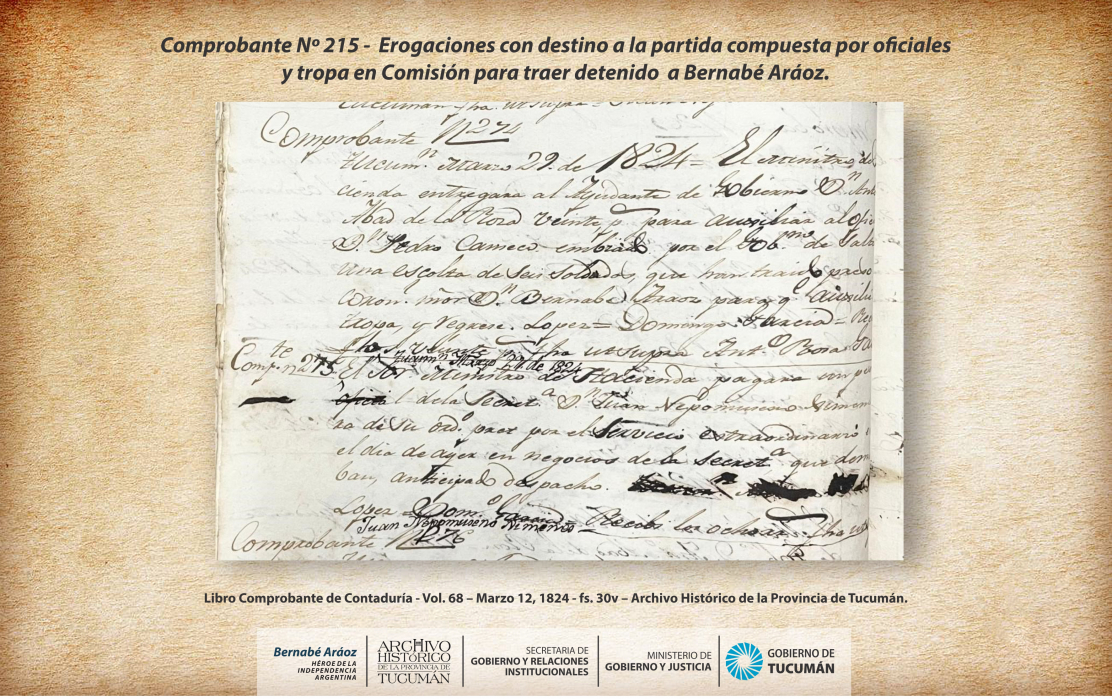 Comprobante Nº 215 - Erogaciones con destino a la partida compuesta por oficiales
y tropa en Comisión para traer detenido a Bernabé Aráoz.
Comprobante N 274
Tucum.n Marzo 29. de 1824 = El Ministro de
cienda entregara al Ayudante de Gobierno D.n Ant
Abad de la Rosa veinte p. para auxiliar al ofi
D.n Pedro Cameco embiado por el Gob.no de Salt
una escolta de seis soldados, que han traido preso
Coron. mor D.n Bernabe Araoz para q.e auxilie
tropa, y regrese. Lopez = Domingo Garcia = Re
fha ut supra Ant.o Rosa
Comp.te n 275
Tucum.n Marzo 24 de 1824
El Sor Ministro de Hacienda pagara un p
oficial de la Secret.a D.n Juan Nepomuseno Ximen
ra de su ord.o por el servicio extraordinario
el dia de ayer en negocios de la Secret.a que dem
ban, anticipado despacho.
Lopez = Dom.o Garcia = Recibi los ocho fha
Juan Nepomuseno Ximenes
Comprobante N 276
Libro Comprobante de Contaduría - Vol. 68 – Marzo 12, 1824 - fs. 30v – Archivo Histórico de la Provincia de Tucumán.
Bernabé Aráoz
HÉROE DE LA
INDEPENDENCIA
ARGENTINA
ARCHIVO
HISTÓRICO
DE LA PROVINCIA DE
TUCUMÁN
SECRETARIA DE
GOBIERNO Y RELACIONES
INSTITUCIONALES
MINISTERIO DE
GOBIERNO Y JUSTICIA
GOBIERNO DE
TUCUMÁN